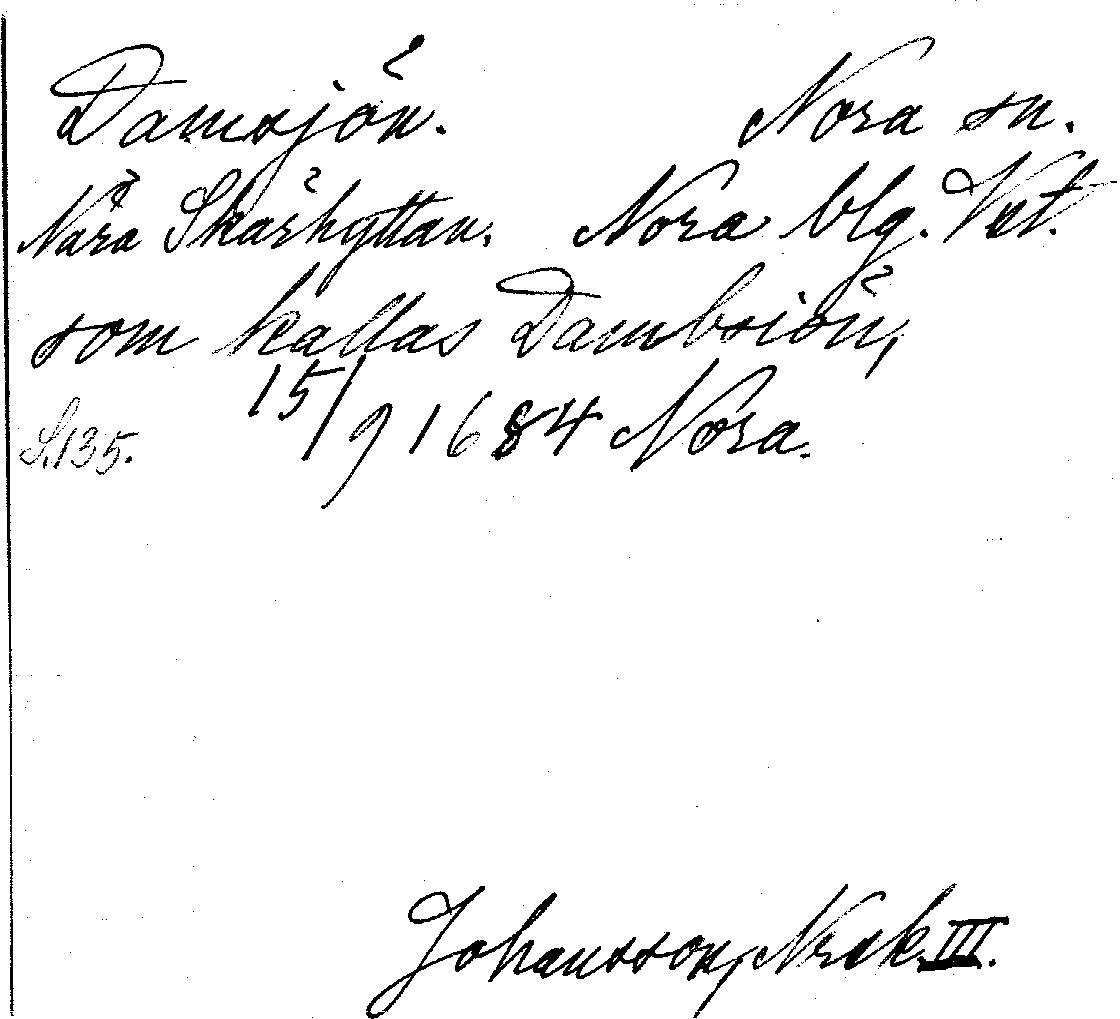 Damsjön. Nora sn.
Nära Skärhyttan. Nora blg. Vstl.
som kallas Dambsiön,
15/9 1684 Nora.
S.135.
Johansson, Nrsk. III.